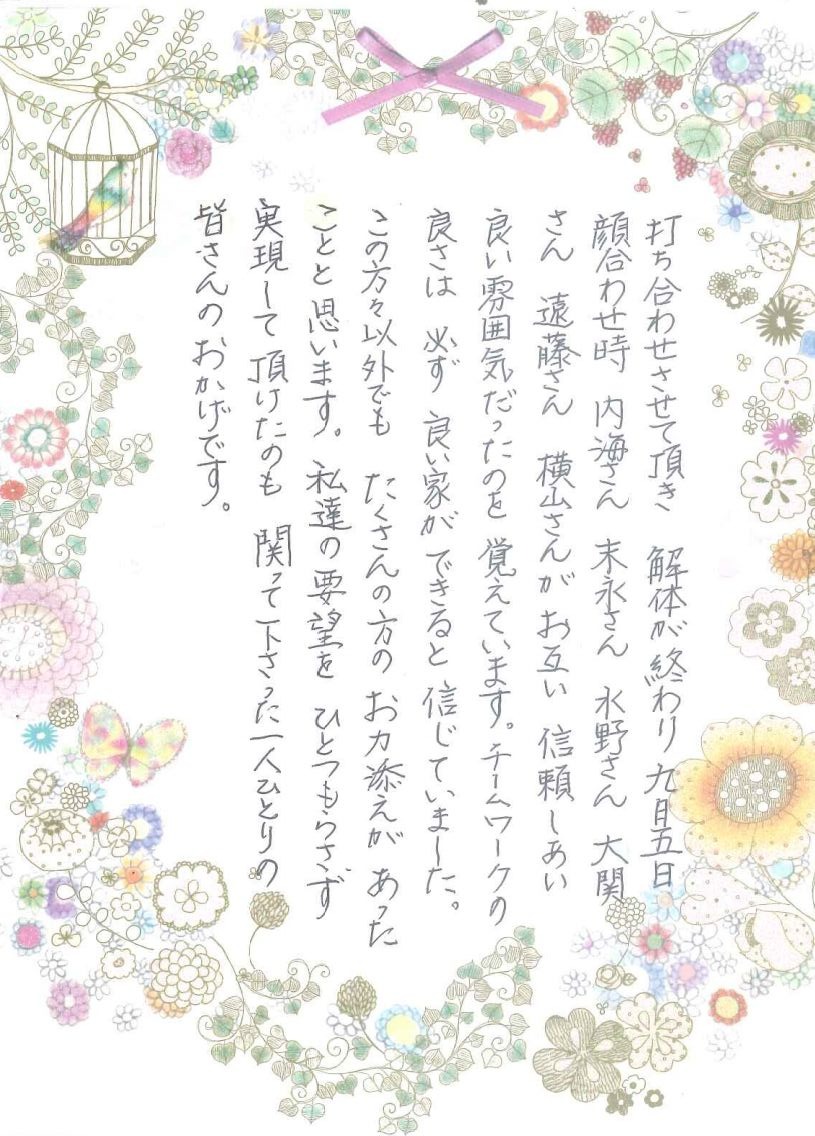 打ち合わせさせて頂き 解体が終わり 九月五日
顔合わせ時 内海さん 末永さん 水野さん 大関
さん 遠藤さん 横山さんがお互い 信頼しあい
良い雰囲気だったのを 覚えています。チームワークの
良さは 必ず 良い家ができると 信じていました。
この方々以外でも たくさんの方の お力添えが あった
ことと思います。私達の要望を ひとつもらさず
実現して 頂けたのも 関って下さった一人ひとりの
皆さんの おかげです。